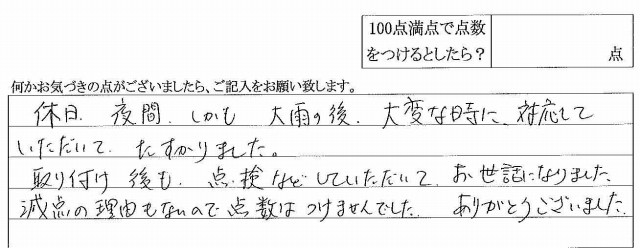 100点満点で点数
をつけるとしたら？
点
何かお気づきの点がございましたら、ご記入をお願い致します。
休日、夜間、しかも 大雨の後、大変な時に、対応して
いただいて、たすかりました。
取り付け 後も、点検などしていただいて、お世話になりました。
減点の理由もないので点数はつけませんでした。 ありがとうございました。